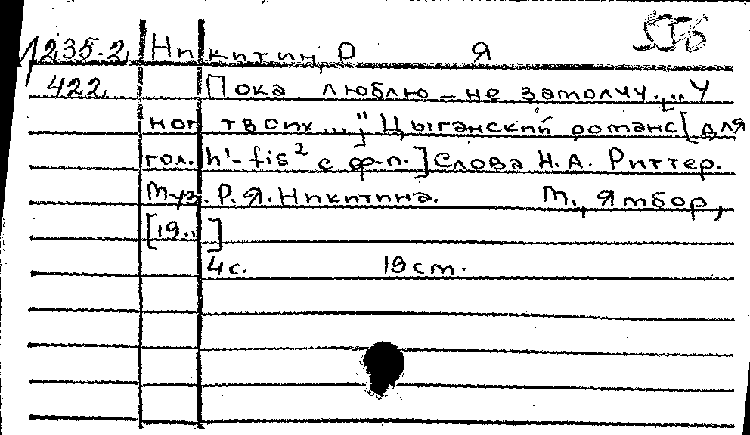 1235-2 Никитин, Р Я
422. Пока люблю – не замолчу. „У
ног твоих...", Цыганский романс [для
гол. h¹-fis² с ф-п.] Слова Н.А. Риттер.
Муз. Р.Я. Никитина. М., Ямбор,
[19..]
4 с. 19 см.